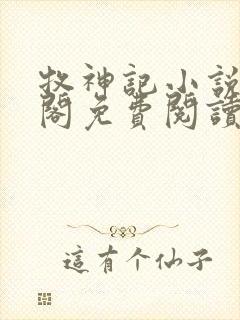 牧神記小說
閣免費閱讀
這有个仙子